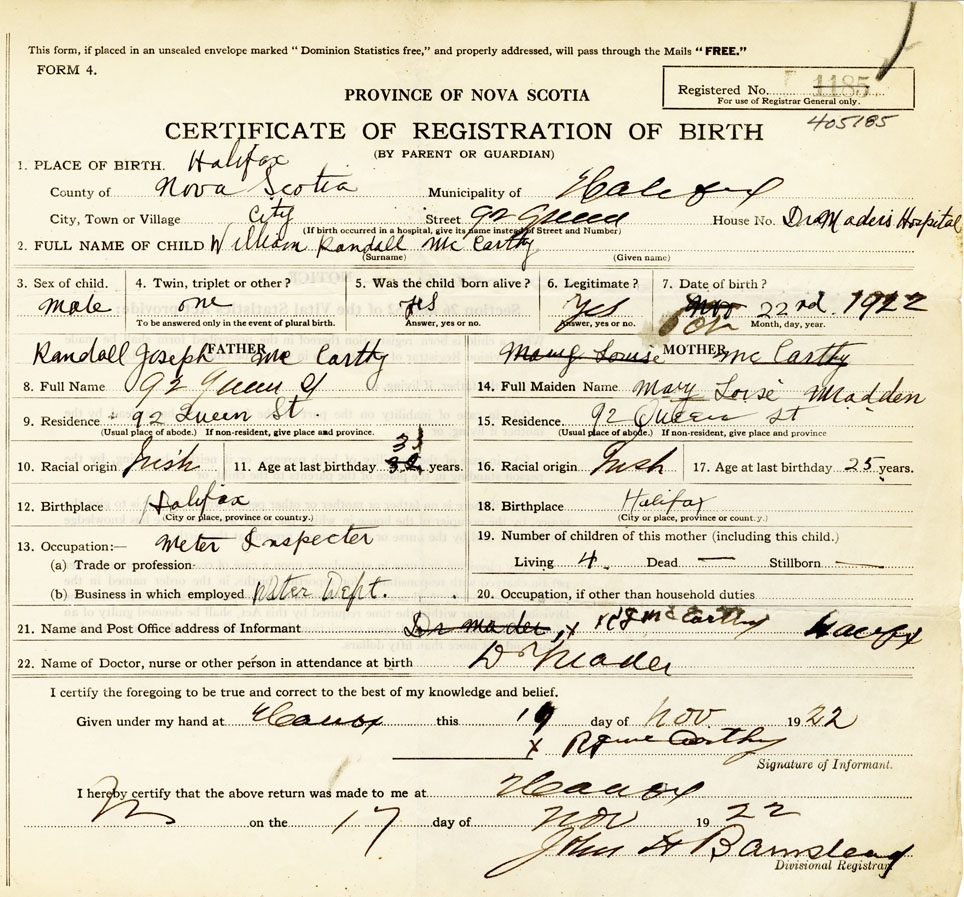 This form, if placed in an unsealed envelope marked "Dominion Statistics free," and properly addressed, will pass through the Mails "FREE."
FORM 4.
Registered No. 1185
For use of Registrar General only.
405185
PROVINCE OF NOVA SCOTIA
CERTIFICATE OF REGISTRATION OF BIRTH
(BY PARENT OR GUARDIAN)
1. PLACE OF BIRTH. Halifax
County of Nova Scotia Municipality of Halifax
City, Town or Village City Street 92 Queen House No. Dr Maders Hospital
(If birth occurred in a hospital, give its name instead of Street and Number)
2. FULL NAME OF CHILD William Randall McCarthy
(Surname) (Given name)
3. Sex of child. 4. Twin, triplet or other? 5. Was the child born alive? 6. Legitimate? 7. Date of birth?
Male one yes Yes Nov Oct 22nd. 1922
To be answered only in the event of plural birth. Answer, yes or no. Answer, yes or no. Month, day, year.
FATHER MOTHER
Randall Joseph McCarthy Mary Louise McCarthy
8. Full Name 92 Queen St 14. Full Maiden Name Mary Loise Madden
9. Residence 92 Queen St. 15. Residence 92 Queen St
(Usual place of abode.) If non-resident, give place and province. (Usual place of abode.) If non-resident, give place and province
10. Racial origin Irish 11. Age at last birthday years. 16. Racial origin Irish 17. Age at last birthday 25 years.
12. Birthplace Halifax 18. Birthplace Halifax
(City or place, province or country.) (City or place, province or country.)
13. Occupation:— Meter Inspecter 19. Number of children of this mother (including this child.)
(a) Trade or profession Living 4 Dead — Stillborn —
(b) Business in which employed Water Dept. 20. Occupation, if other than household duties
21. Name and Post Office address of Informant Dr Mader, x R J McCarthy Halifax
22. Name of Doctor, nurse or other person in attendance at birth Dr Mader
I certify the foregoing to be true and correct to the best of my knowledge and belief.
Given under my hand at Halifax this day of Nov 1922
x R J McCarthy
Signature of Informant.
I hereby certify that the above return was made to me at Halifax
on the 17 day of Nov 1922
John H Barnstead
Divisional Registrar